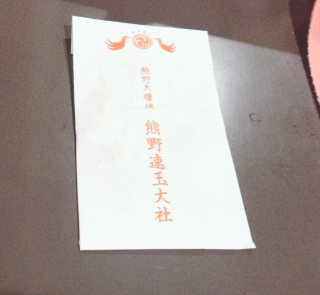 熊野大権現
熊野速玉大社